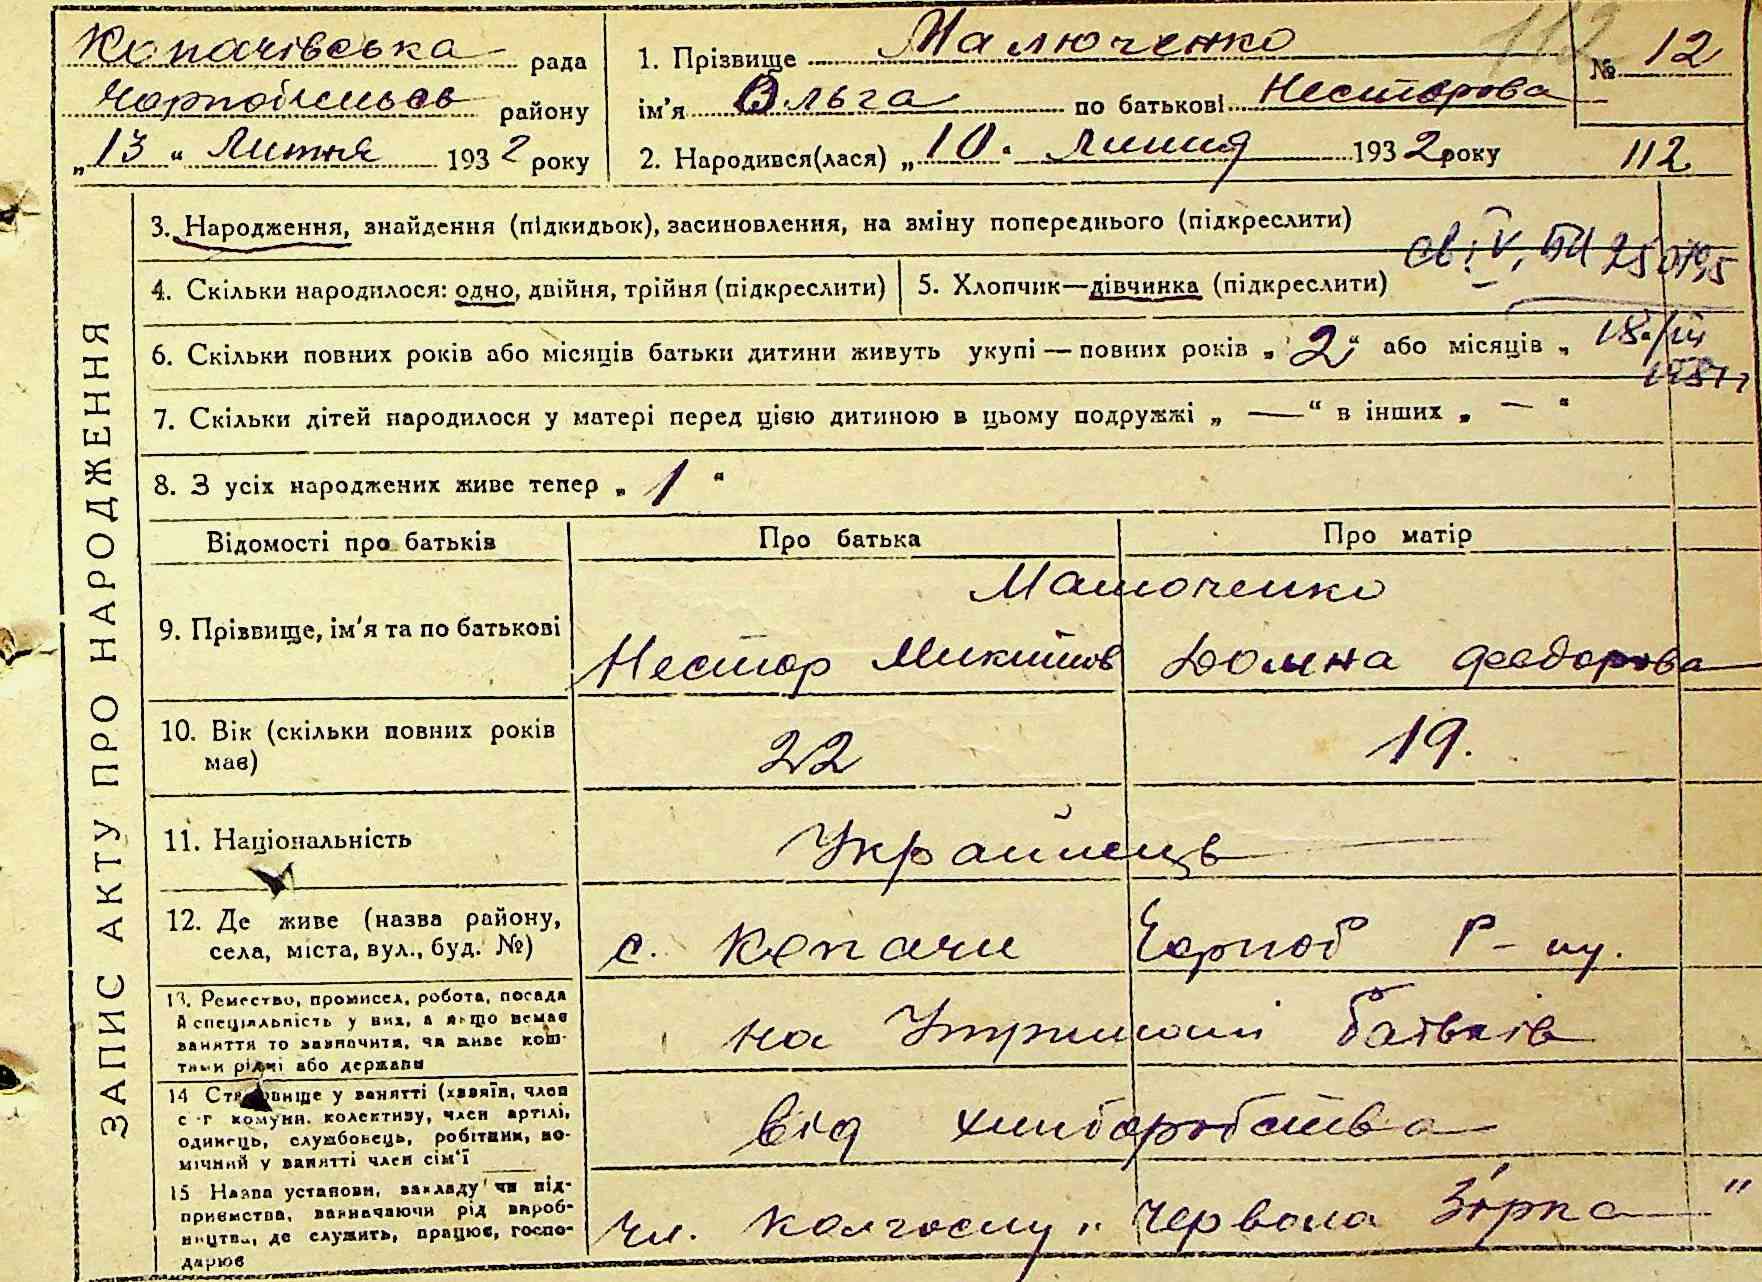 Копачівська рада
Чорнобильсь району
„13“ Лютня 1932 року
1. Прізвище Малюченко
ім'я Ольга по батькові Несторова
2. Народився(лася) „10. 1932 року
№ 12
112
112
ЗАПИС АКТУ ПРО НАРОДЖЕННЯ
3. Народження, знайдення (підкидьок), засиновлення, на зміну попереднього (підкреслити)
4. Скільки народилося: одно, двійня, трійня (підкреслити)
5. Хлопчик—дівчинка (підкреслити)
6. Скільки повних років або місяців батьки дитини живуть укупі — повних років „2“ або місяців „
7. Скільки дітей народилося у матері перед цією дитиною в цьому подружжі „ — “ в інших „ — “
8. З усіх народжених живе тепер „ 1 “
Відомості про батьків
Про батька
Про матір
9. Прізвище, ім'я та по батькові
Малюченко
Нестор Микитов
Домна Феодорова
10. Вік (скільки повних років має)
22
19.
11. Національність
Українець
12. Де живе (назва району,
села, міста, вул., буд. №)
с. Копачи Чорноб Р-ну.
13. Ремество, промисел, робота, посада
й спеціяльність у них, а якщо немає
заняття то зазначити, чи живе кош-
тами рідні або держави
на Утриманні батьків
14 Становище у занятті (хазяїн, член
с-г комуни, колективу, член артілі,
одинець, службовець, робітник, по-
мічний у занятті член сім'ї
від хліборобства
15 Назва установи, закладу чи під-
приємства, зазначаючи рід вироб-
ництва, де служить, працює, госпо-
дарює
чл. колгоспу „Червона Зірка"